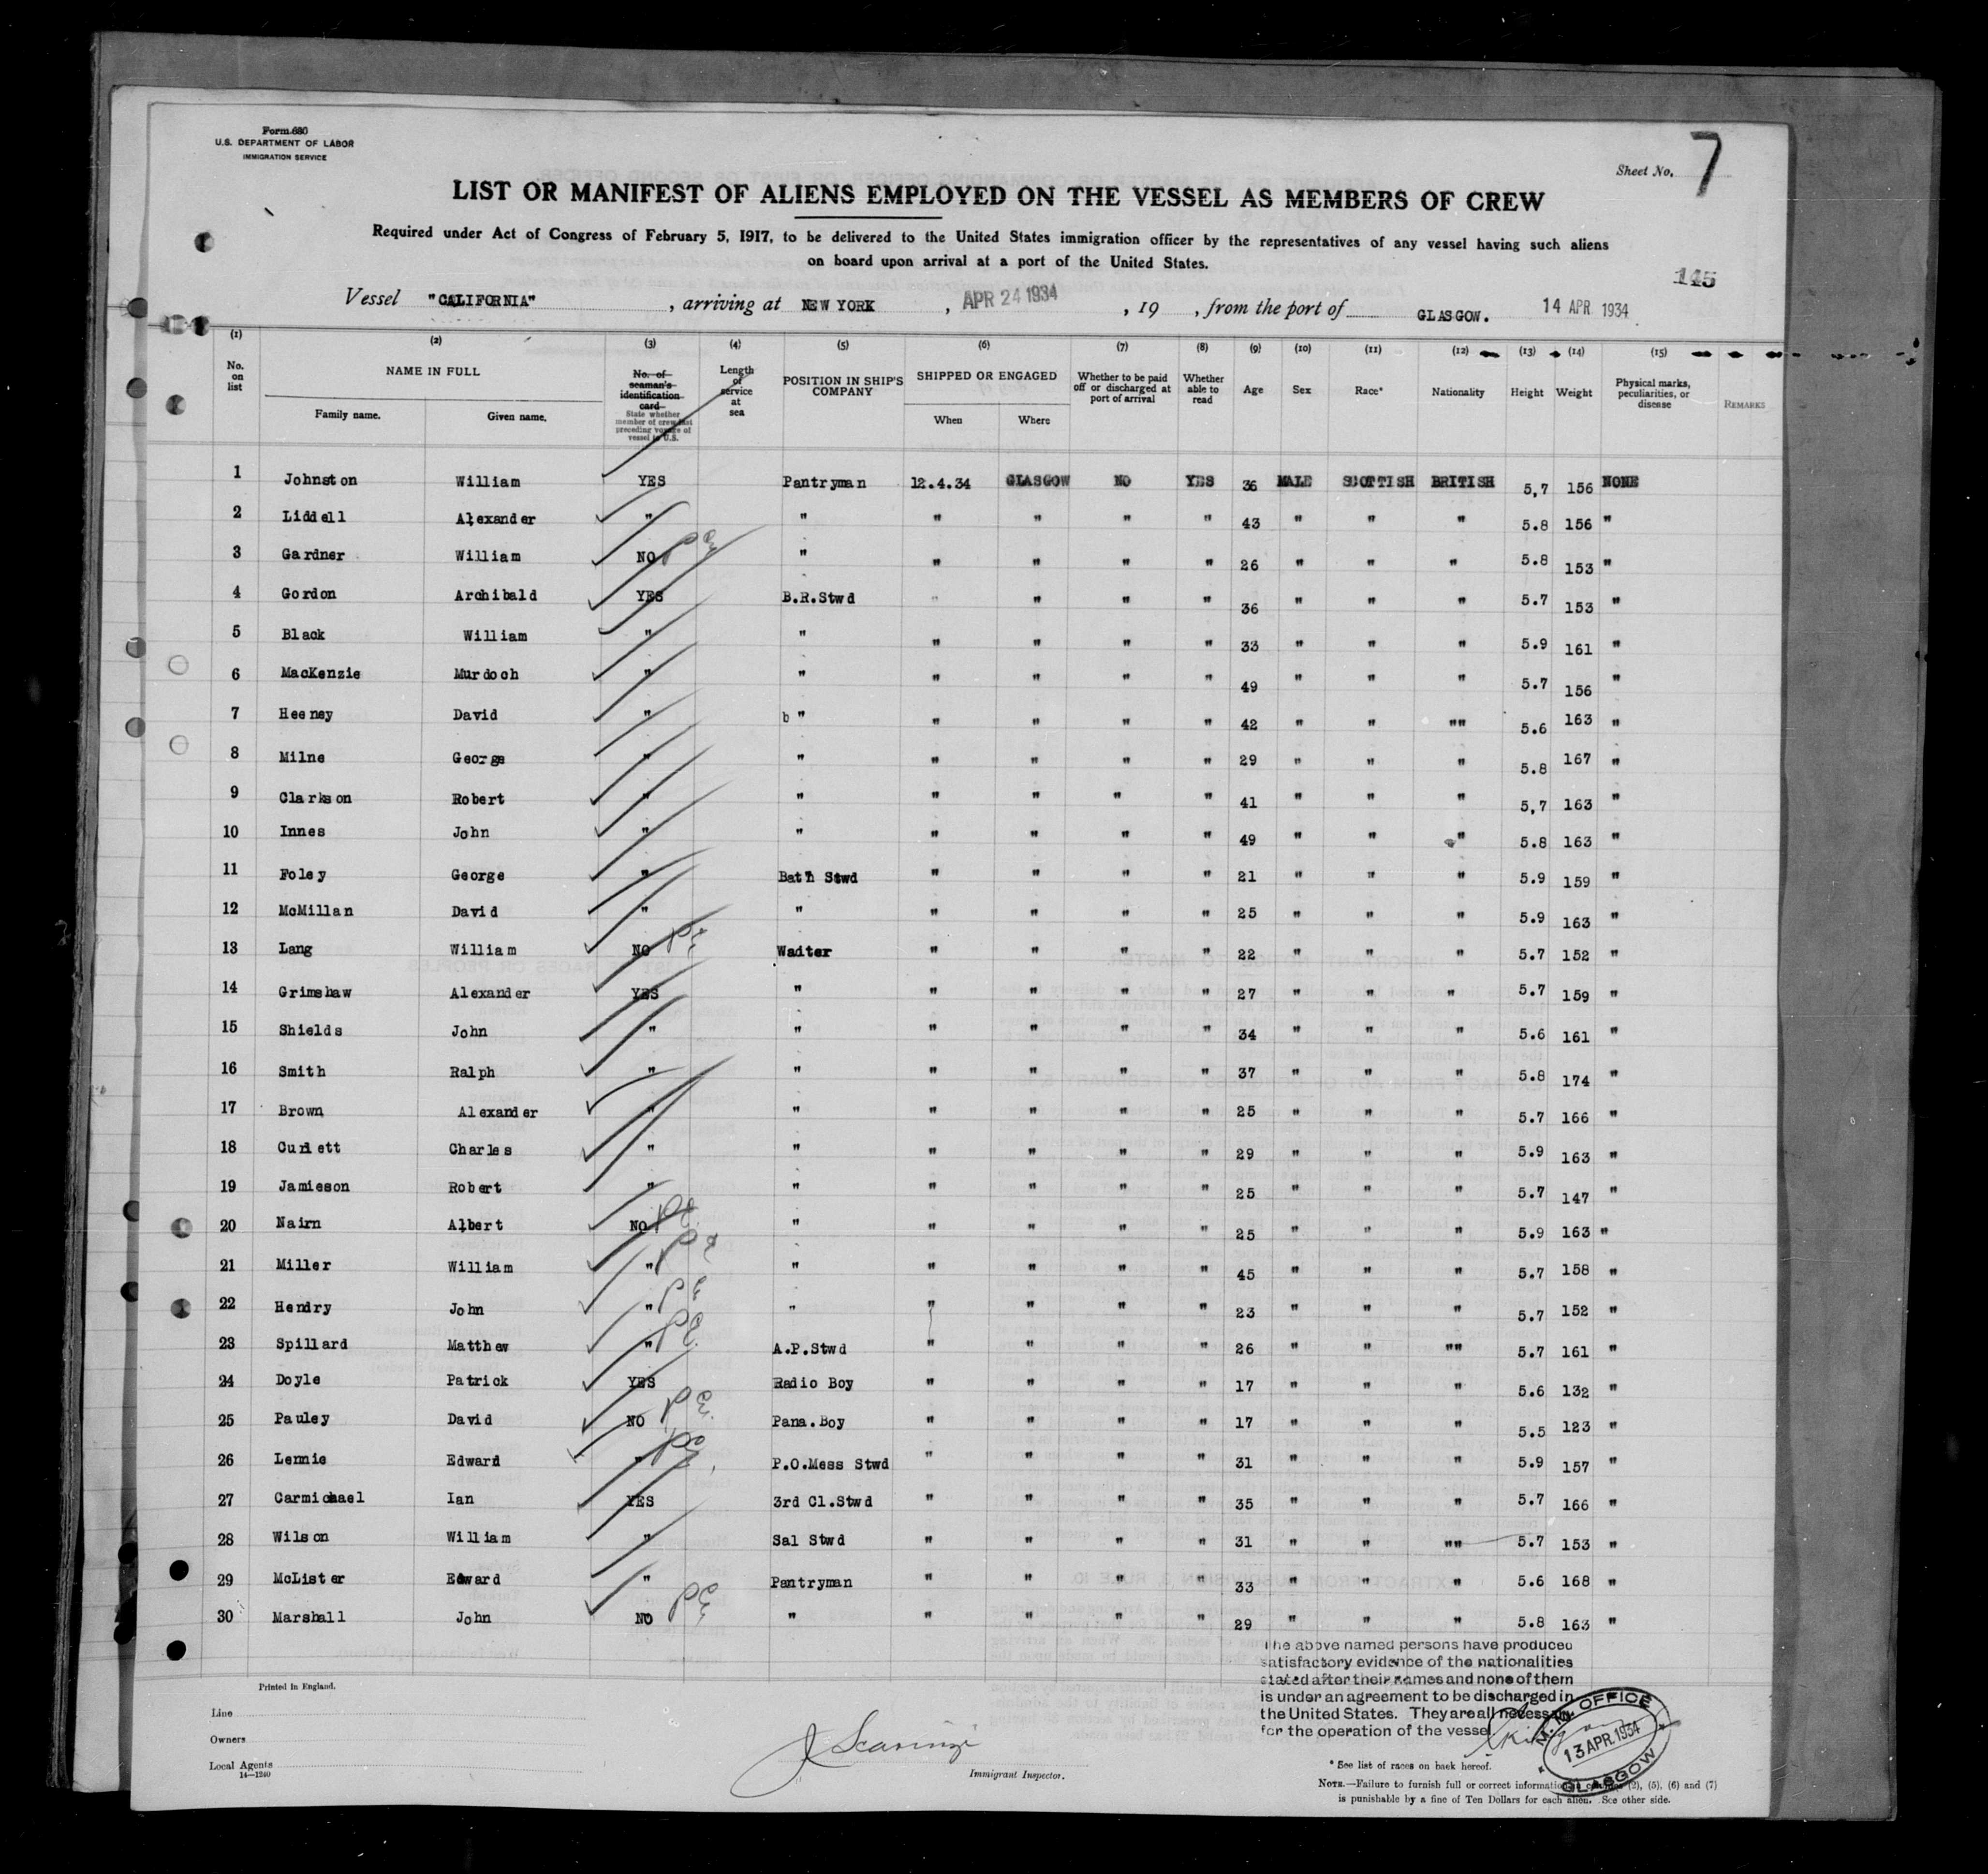 Form 680
U.S. DEPARTMENT OF LABOR
IMMIGRATION SERVICE
Sheet No. 7
LIST OR MANIFEST OF ALIENS EMPLOYED ON THE VESSEL AS MEMBERS OF CREW
Required under Act of Congress of February 5, 1917, to be delivered to the United States immigration officer by the representatives of any vessel having such aliens
on board upon arrival at a port of the United States.
145
Vessel "CALIFORNIA", arriving at NEW YORK, APR 24 1934, 19 , from the port of GLASGOW. 14 APR 1934
(1) (2) (3) (4) (5) (6) (7) (8) (9) (10) (11) (12) (13) (14) (15)
No. on list NAME IN FULL Family name. Given name. No. of seaman's identification card State whether member of crew last preceding voyage of vessel to U.S. Length of service at sea POSITION IN SHIP'S COMPANY SHIPPED OR ENGAGED When Where Whether to be paid off or discharged at port of arrival Whether able to read Age Sex Race* Nationality Height Weight Physical marks, peculiarities, or disease REMARKS
1 Johnston William YES Pantryman 12.4.34 GLASGOW NO YES 36 MALE SCOTTISH BRITISH 5,7 156 NONE
2 Liddell Alexander " " " " " " 43 " " " 5.8 156 "
3 Gardner William NO " " " " " 26 " " " 5.8 153 "
4 Gordon Archibald YES B.R.Stwd " " " " 36 " " " 5.7 153 "
5 Black William " " " " " " 33 " " " 5.9 161 "
6 MacKenzie Murdoch " " " " " " 49 " " " 5.7 156 "
7 Heeney David " b " " " " " 42 " " "" 5.6 163 "
8 Milne George " " " " " " 29 " " " 5.8 167 "
9 Clarkson Robert " " " " " " 41 " " " 5,7 163 "
10 Innes John " " " " " " 49 " " " 5.8 163 "
11 Foley George " Bath Stwd " " " " 21 " " " 5.9 159 "
12 McMillan David " " " " " " 25 " " " 5.9 163 "
13 Lang William NO Waiter " " " " 22 " " " 5.7 152 "
14 Grimshaw Alexander YES " " " " " 27 " " " 5.7 159 "
15 Shields John " " " " " " 34 " " " 5.6 161 "
16 Smith Ralph " " " " " " 37 " " " 5.8 174 "
17 Brown Alexander " " " " " " 25 " " " 5.7 166 "
18 Curlett Charles " " " " " " 29 " " " 5.9 163 "
19 Jamieson Robert " " " " " " 25 " " " 5.7 147 "
20 Nairn Albert NO " " " " " 25 " " " 5.9 163 "
21 Miller William " " " " " " 45 " " " 5.7 158 "
22 Hendry John " " " " " " 23 " " " 5.7 152 "
23 Spillard Matthew " A.P.Stwd " " " " 26 " " "" 5.7 161 "
24 Doyle Patrick YES Radio Boy " " " " 17 " " " 5.6 132 "
25 Pauley David NO Pana.Boy " " " " 17 " " " 5.5 123 "
26 Lennie Edward " P.O.Mess Stwd " " " " 31 " " " 5.9 157 "
27 Carmichael Ian YES 3rd Cl.Stwd " " " " 35 " " " 5.7 166 "
28 Wilson William " Sal Stwd " " " " 31 " " "" 5.7 153 "
29 McLister Edward " Pantryman " " " " 33 " " " 5.6 168 "
30 Marshall John NO " " " " " 29 " " " 5.8 163 "
The above named persons have produced
satisfactory evidence of the nationalities
stated after their names and none of them
is under an agreement to be discharged in
the United States. They are all necessary
for the operation of the vessel
M.M. OFFICE
13 APR. 1934
GLASGOW
Printed in England.
Line
Owners
Local Agents
14—1240
Immigrant Inspector.
* See list of races on back hereof.
NOTE.—Failure to furnish full or correct information in columns (2), (5), (6) and (7)
is punishable by a fine of Ten Dollars for each alien. See other side.